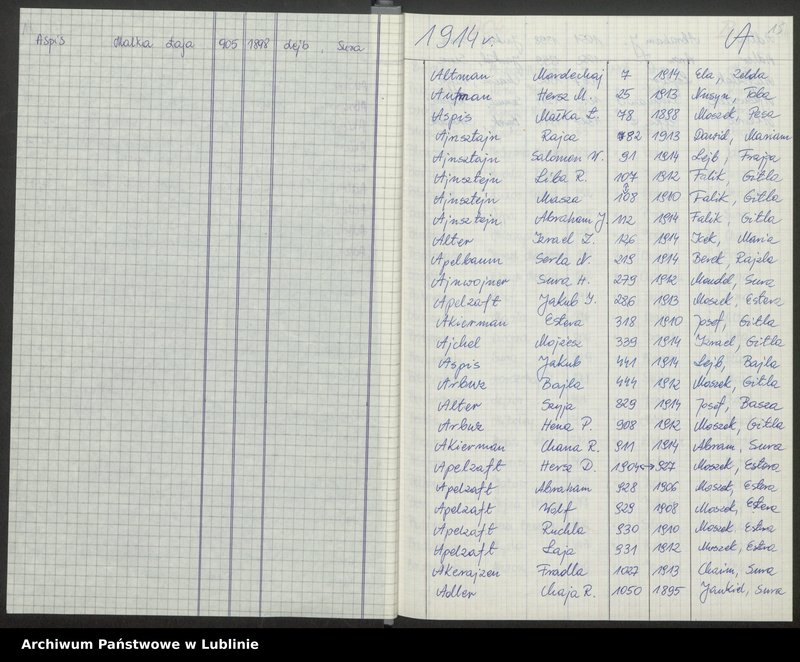 Aspis Małka Łaja 905 1898 Lejb, Sura
1914 r. A 15
Altman Mordechaj 7 1914 Ela, Zelda
Autman Hersz M. 25 1913 Nusyn, Toba
Aspis Małka Ł. 78 1898 Moszek, Pesa
Ajnsztajn Rajca 82 1913 Dawid, Mariam
Ajnsztajn Salomon W. 91 1914 Lejb, Frajpa
Ajnsztejn Liba R. 107 1912 Falik, Gitla
Ajnsztejn Masza 108 1910 Falik, Gitla
Ajnsztejn Abraham J. 112 1914 Falik, Gitla
Alter Izrael Z. 126 1914 Icek, Maria
Apelbaum Serla N. 219 1914 Berek Rajzla
Ajnwojner Sura H. 279 1912 Mendel, Sura
Apelzaft Jakub I. 286 1913 Moszek, Estera
Akierman Estera 318 1910 Josef, Gitla
Ajchel Mojżesz 339 1914 Izrael, Gitla
Aspis Jakub 441 1914 Lejb, Bajla
Arbuz Bajla 444 1912 Moszek, Gitla
Alter Szyja 829 1914 Josef, Basza
Arbuz Hena P. 908 1912 Moszek, Gitla
Akierman Chana R. 911 1914 Abram, Sura
Apelzaft Hersz D. 1904 927 Moszek, Estera
Apelzaft Abraham 928 1906 Moszek, Estera
Apelzaft Wolf 929 1908 Moszek, Estera
Apelzaft Ruchla 930 1910 Moszek Estera
Apelzaft Łaja 931 1912 Moszek, Estera
Akerajzen Fradla 1027 1913 Chaim, Sura
Adler Chaja R. 1050 1895 Jankiel, Sura
Archiwum Państwowe w Lublinie